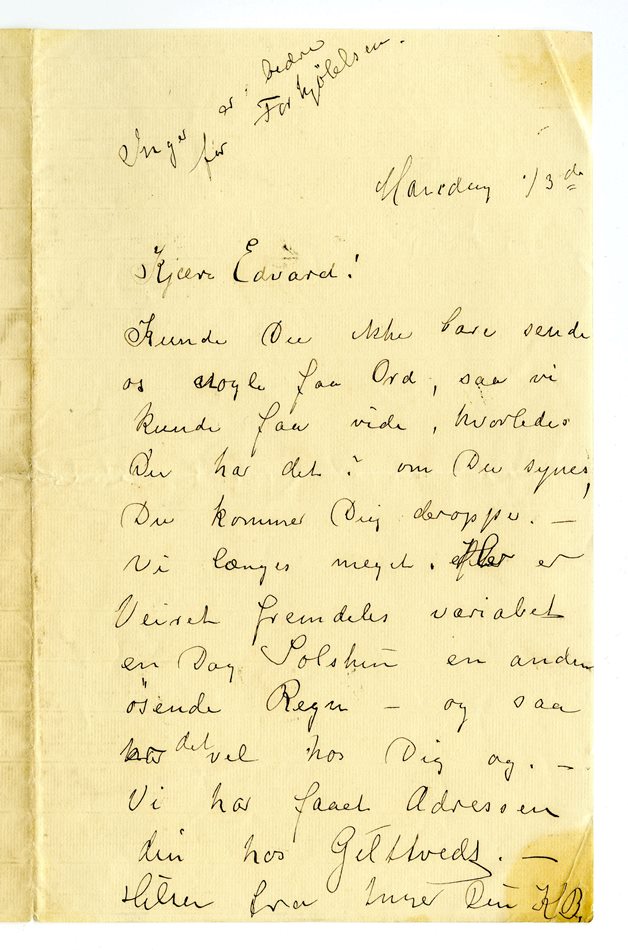 Inger er bedre
for Forkjölelsen.
Mandag 1/3 de
Kjære Edvard!
Kunde Du ikke bare sende
os nogle faa Ord, saa vi
kunde faa vide, hvorledes
Du har det? om Du synes,
Du kommer Dig deroppe. —
Vi længes meget. Her er
Veiret fremdeles variabelt
en Dag Solskin en anden
ösende Regn — og saa
har det vel hos Dig og. —
Vi har faaet Adressen
din hos Gilhveds. —
Hilsen fra Inger Din K B.